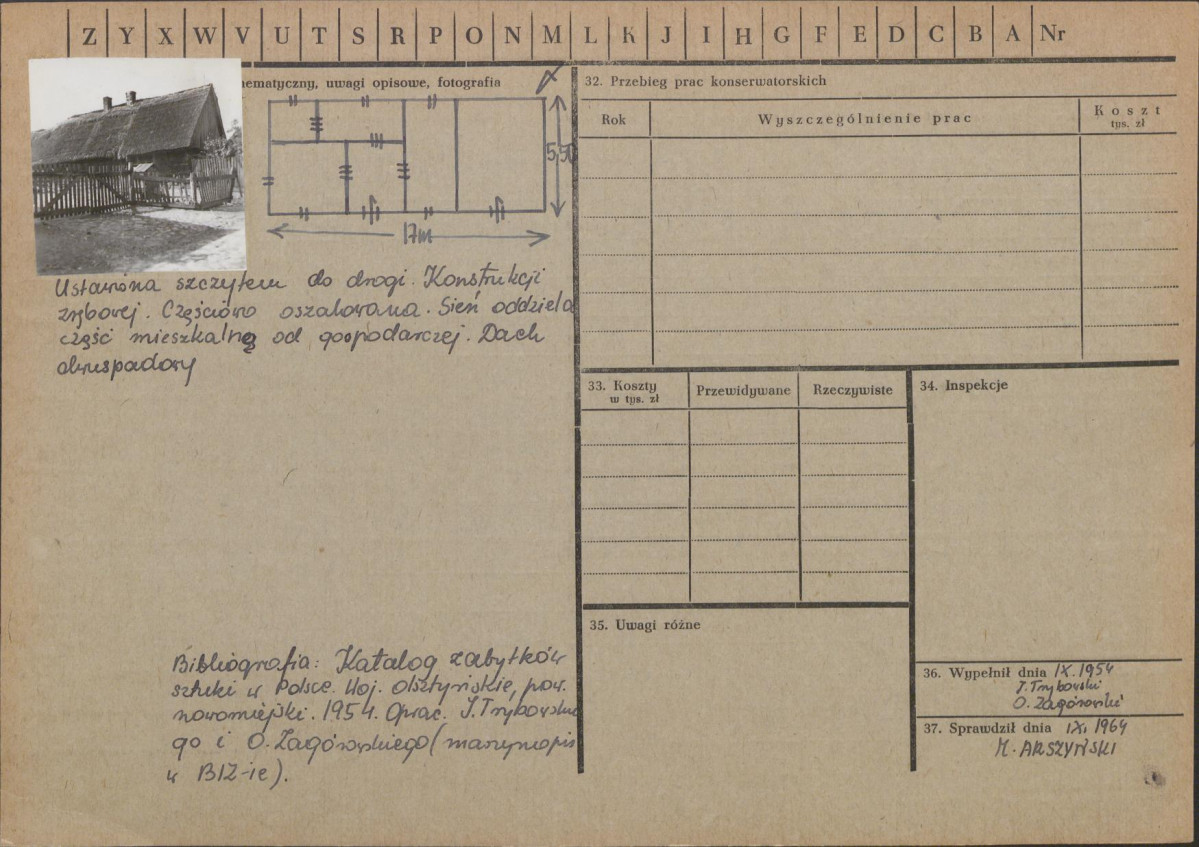 Z Y X W V U T S R P O N M L K J I H G F E D C B A Nr
hematyczny, uwagi opisowe, fotografia
5,50
17m
Ustawiona szczytem do drogi. Konstrukcji
zrębowej. Częściowo oszalowana. Sień oddziela
część mieszkalną od gospodarczej. Dach
dwuspadowy
Bibliografia: Katalog zabytków
sztuki w Polsce. Woj. olsztyńskie, pow.
nowomiejski. 1954. Oprac. J. Frybowskie
go i O. Zagórowskiego (maszynopis
w BIZ-ie).
32. Przebieg prac konserwatorskich
Rok
Wyszczególnienie prac
Koszt
tys. zł
33. Koszty
w tys. zł
Przewidywane
Rzeczywiste
34. Inspekcje
35. Uwagi różne
36. Wypełnił dnia IX. 1954
O. Zagórowski
37. Sprawdził dnia IX, 1964
M. ARSZYŃSKI